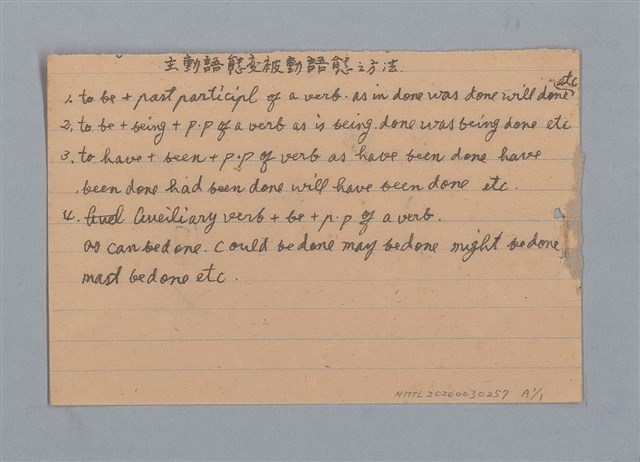 主動語態変被動語態之方法.
1. to be + past participl of a verb. as in done was done will done etc
2, to be + being + p.p of a verb as is being. done was being done etc
3. to have + been + p.p of verb as have been done have
been done had been done will have been done etc.
4. Aueiliary verb + be + p.p of a verb.
as can be done. could be done may be done might be done
mast be done etc.
NMTL20200030257 A1/1